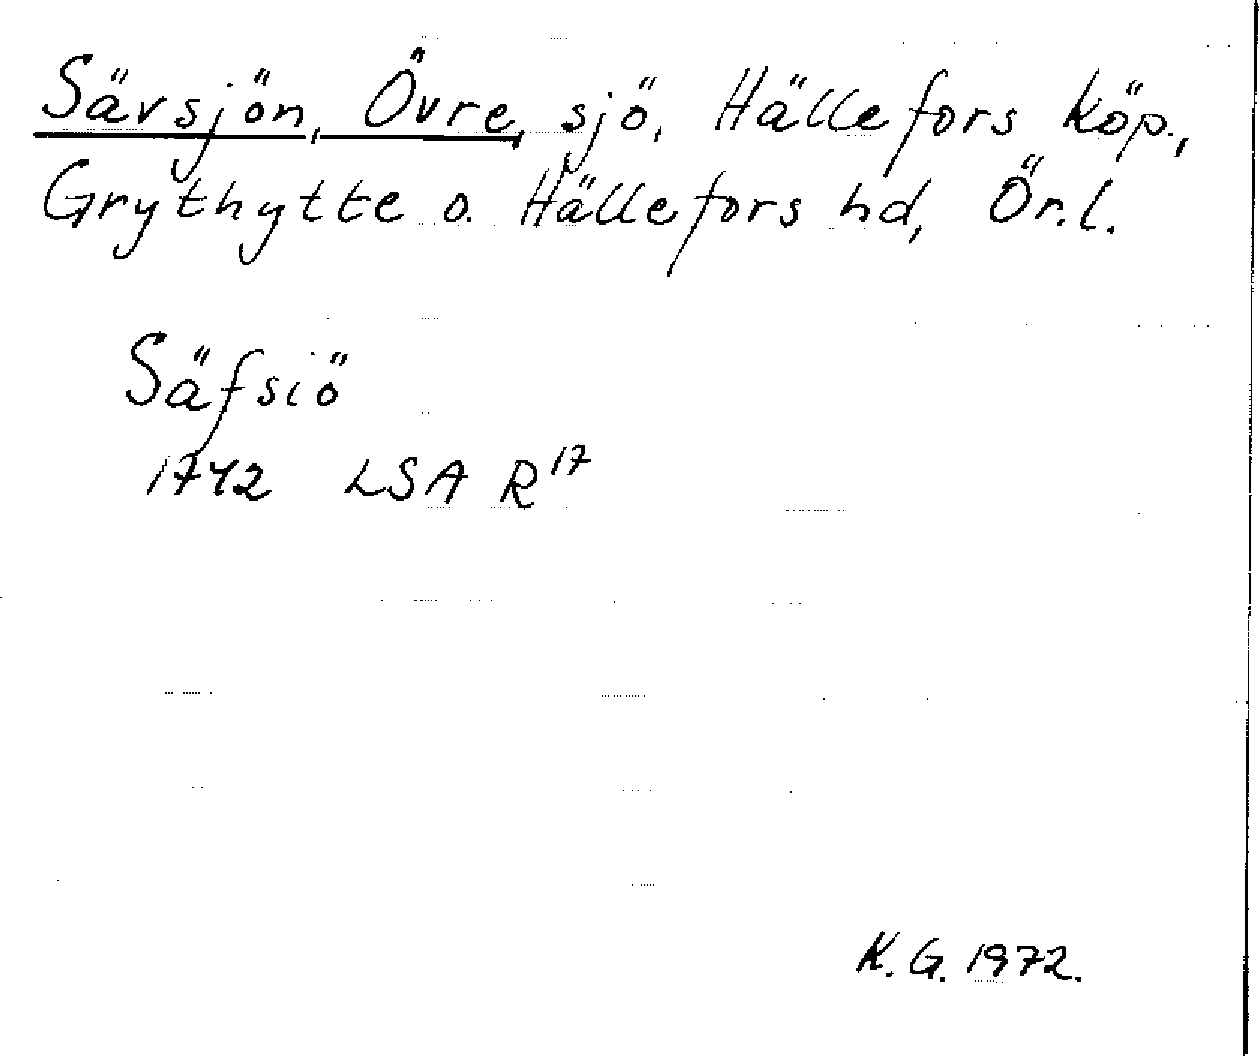 Sävsjön, Övre, sjö, Hällefors köp.,
Grythytte o. Hällefors hd, Ör.l.
Säfsiö
1742 LSA R17
K.G. 1972.